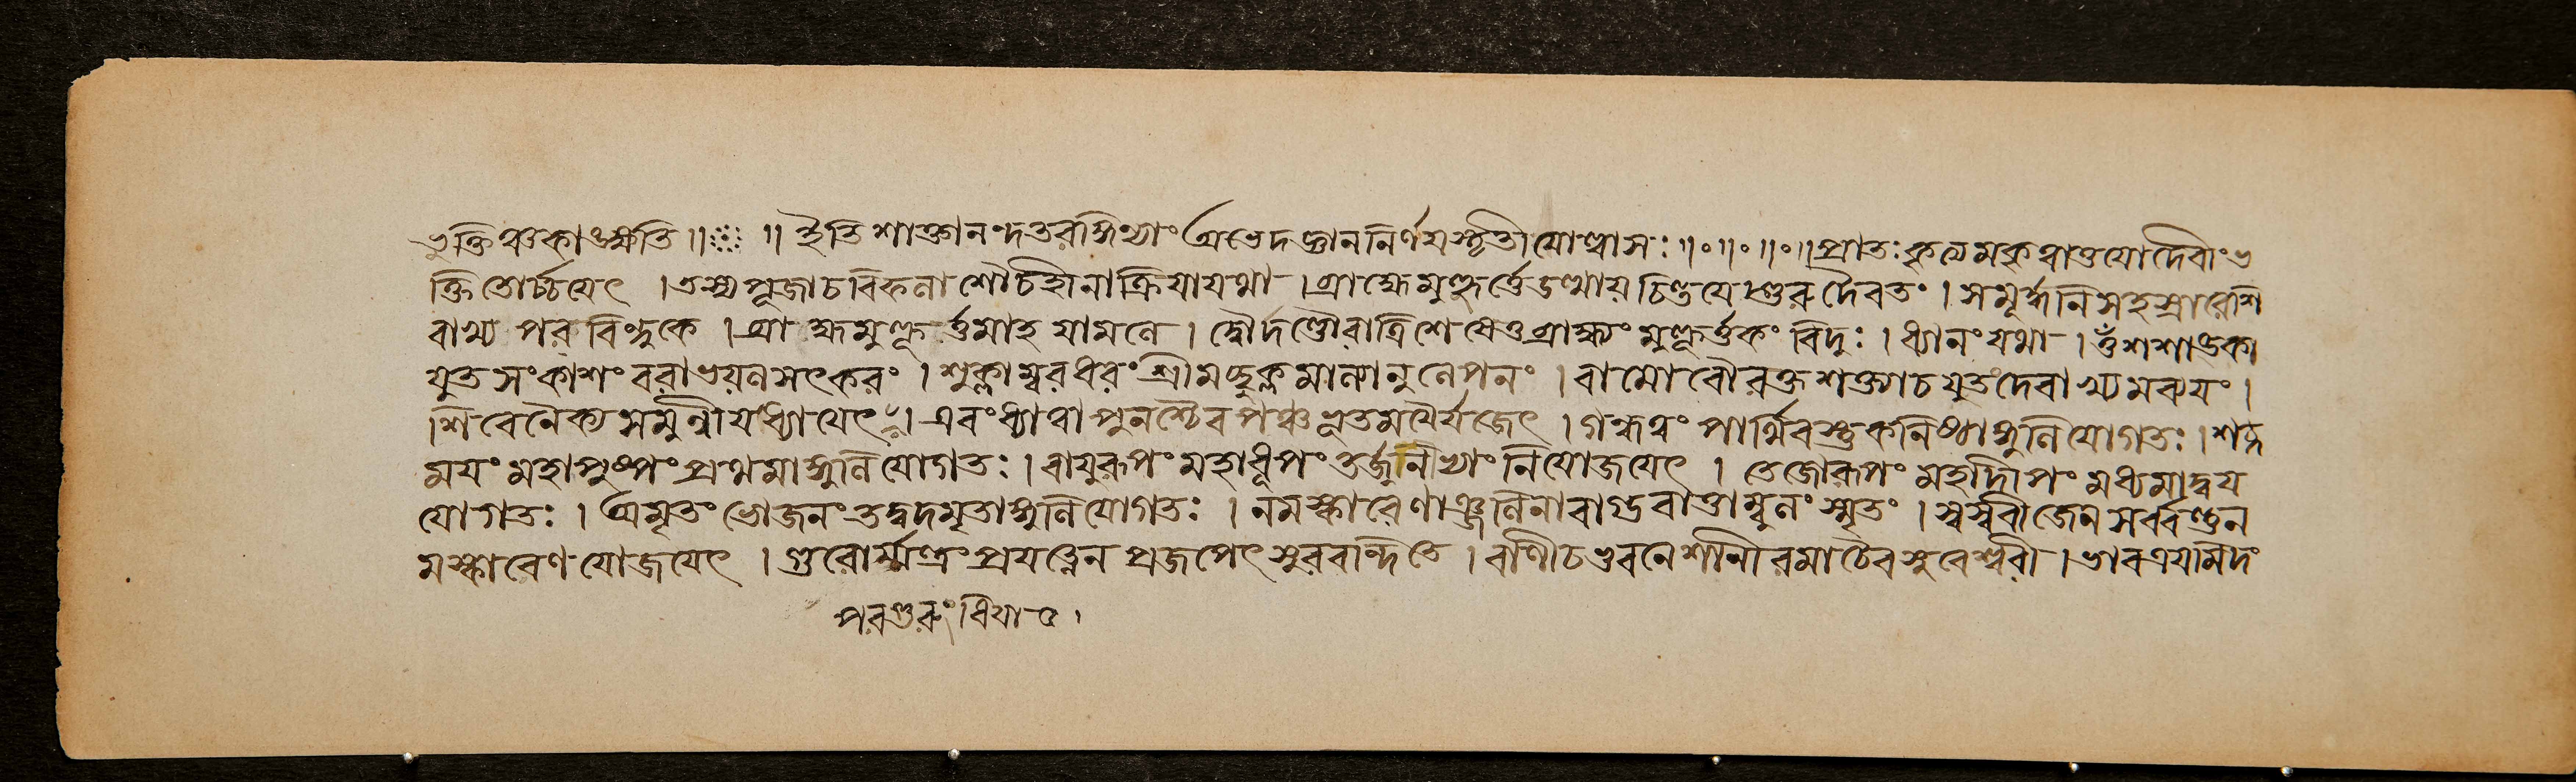 ভুক্তিঞ্চকাঙক্ষতি ॥ ॥ ইতি শাক্তানন্দতরঙ্গিণ্যাং অভেদজ্ঞাননির্ণয়স্তৃতীয়োল্লাসঃ ॥॰॥॰॥॰॥ প্রাতঃকৃত্যমকৃত্বাতুযোদেবীংভ
ক্তিতোর্চ্চয়েৎ । তস্যপূজাচবিফলাশৌচহীনাক্রিয়াযথা । ব্রাহ্মেমুহূর্ত্তেউত্থায়চিন্তয়েদ্গুরুদৈবতং । সমূর্দ্ধনিসহস্রারেশি
বাখ্য পর বিন্দুকে । ব্রাহ্মমুহূর্ত্তমাহ যামলে । দ্বৌদণ্ডৌরাত্রিশেষেতুব্রাহ্ম্যং মুহূর্ত্তকং বিদুঃ । ধ্যানং যথা । ওঁ শশাঙ্কা
যুত সংকাশং বরাভয়লসৎকরং । শুক্লাম্বরধরং শ্রীমচ্ছুক্লমাল্যানুলেপনং । বামোরৌরক্তশক্ত্যাচযুতংদেবাখ্যমব্যয়ং ।
শিবেনৈক্য সমুন্নীয়ধ্যায়েৎ । এবংধ্যাত্বাপুনশ্চৈব পঞ্চভূতময়ৈর্যজেৎ । গন্ধতত্ত্বং পার্থিবস্তুকনিষ্ঠাঙ্গুলিযোগতঃ । শব্দ
ময়ং মহাপুষ্পং প্রথমাঙ্গুলিযোগতঃ । বায়ুরূপং মহাধূপং তর্জ্জনীভ্যাং নিয়োজয়েৎ । তেজোরূপং মহদ্দীপং মধ্যমাদ্বয়
যোগতঃ । অমৃতং ভোজনং তদ্বদমৃতাঙ্গুলিযোগতঃ । নমস্কারেণাঞ্জলিনাবাগ্ভবাত্তাম্বুলং স্মৃতং । স্বস্ববীজেনসর্ব্বন্তুন
মস্কারেণযোজয়েৎ । গুরোর্ম্মন্ত্রং প্রযত্নেন প্রজপেৎ সুরবন্দিতে । বাণীচভুবনেশানীরমাচৈবসুরেশ্বরী । ভাবত্রয়ামিদং
পরগুরুং ধিয়া ৫ ।